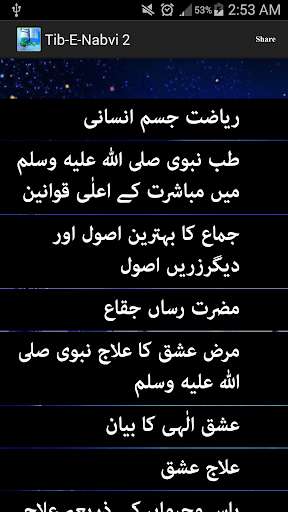 53% 2:53 AM
Tib-E-Nabvi 2 Share
ریاضت جسم انسانی
طب نبوی صلی اللہ علیہ وسلم
میں مباشرت کے اعلٰی قوانین
جماع کا بہترین اصول اور
دیگرزریں اصول
مضرت رساں جقاع
مرض عشق کا علاج نبوی صلی
اللہ علیہ وسلم
عشق الٰہی کا بیان
علاج عشق